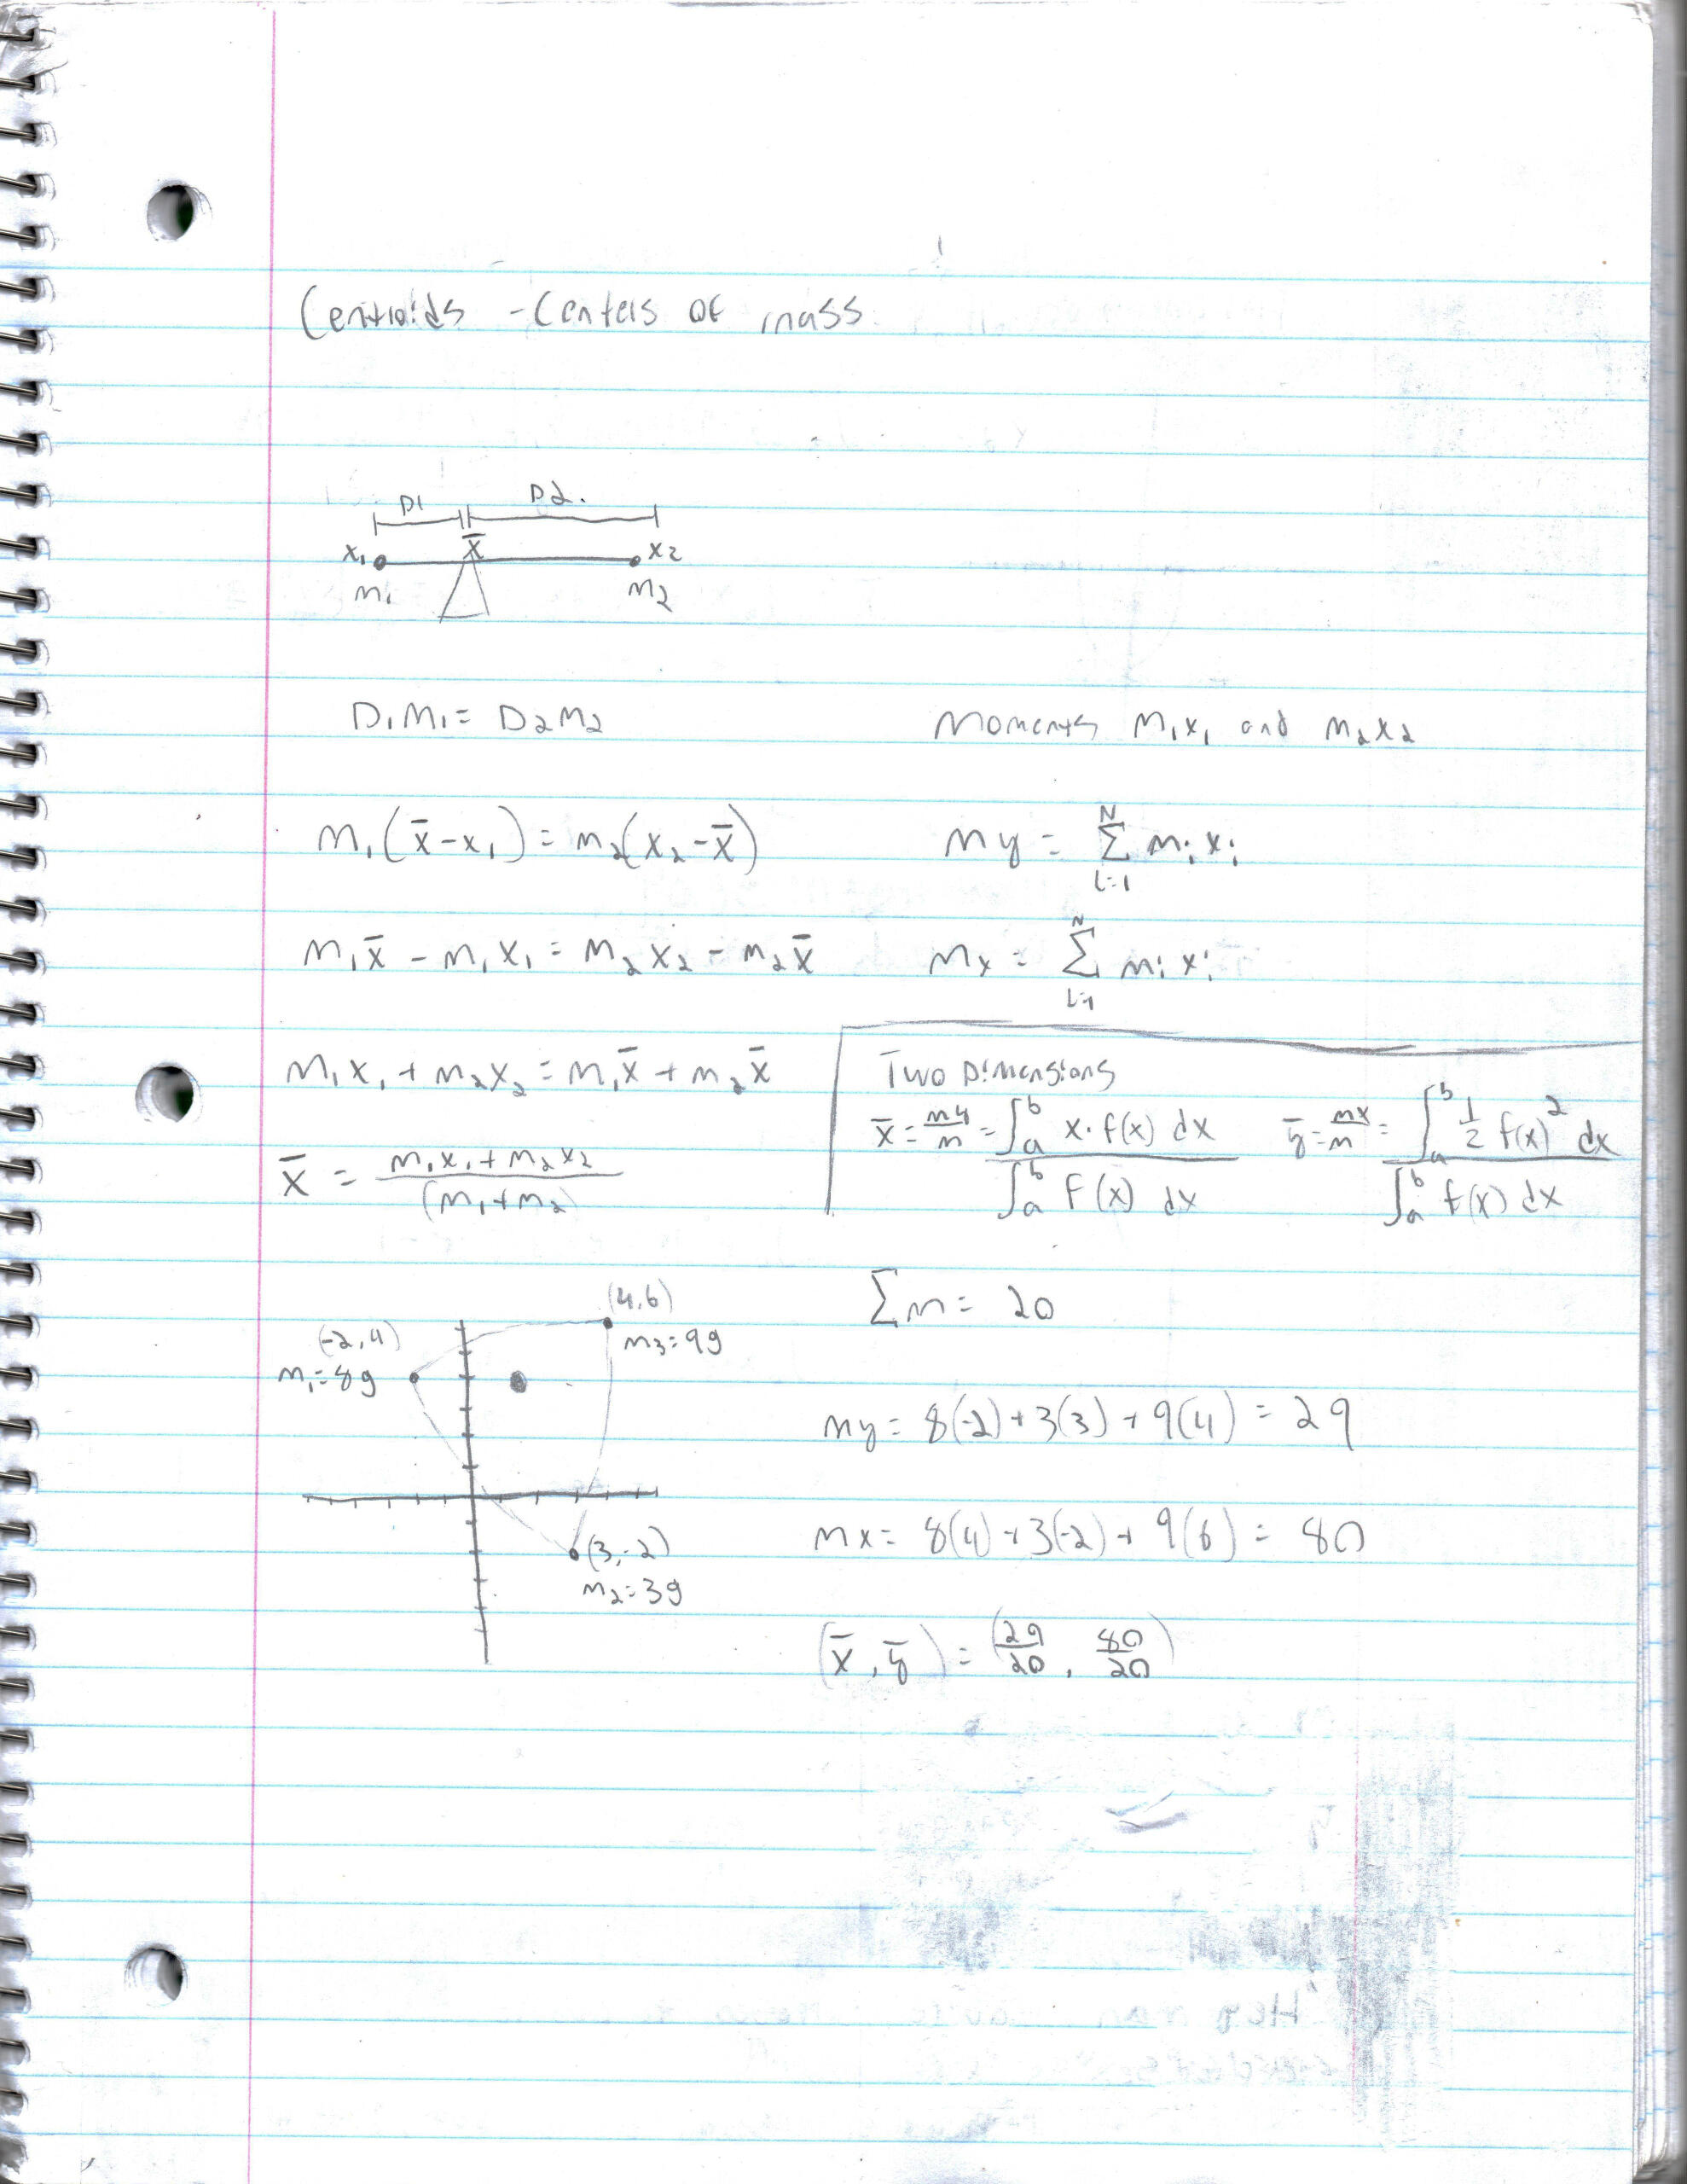 Centroids - Centers of mass
D1 D2.
x₁ x̄ x₂
m₁ m₂
D₁M₁ = D₂M₂
Moments M₁x₁ and m₂x₂
m₁(x̄-x₁) = m₂(x₂-x̄)
my = Σ_{i=1}^{N} mᵢxᵢ
m₁x̄ - m₁x₁ = m₂x₂ - m₂x̄
Mx = Σ_{i=1}^{N} mᵢxᵢ
m₁x₁ + m₂x₂ = m₁x̄ + m₂x̄
x̄ = (m₁x₁ + m₂x₂)/(m₁+m₂)
Two Dimensions
x̄ = my/m = ∫_a^b x·f(x) dx / ∫_a^b F(x) dx   ȳ = mx/m = ∫_a^b ½ f(x)² dx / ∫_a^b f(x) dx
(4,6)
m₃=9g
(-2,4)
m₁=8g
(3,-2)
m₂=3g
Σm = 20
my = 8(-2)+3(3)+9(4) = 29
mx = 8(4)+3(-2)+9(6) = 80
(x̄, ȳ) = (29/20, 80/20)